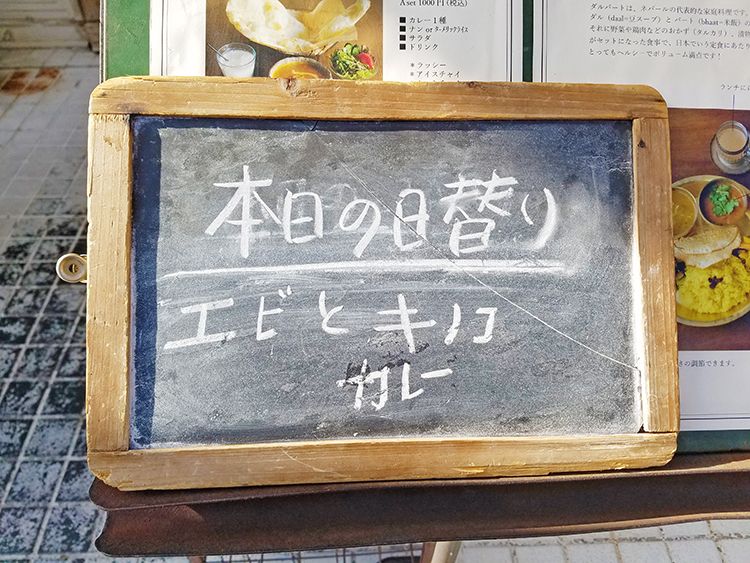 A set 1000円(税込)
■ カレー1種
■ ナン or ターメリックライス
■ サラダ
■ ドリンク
＊ラッシー
＊アイスチャイ
ダルバートは、ネパールの代表的な家庭料理です。
ダル (daal=豆スープ) と バート (bhaat=米飯) の
それに野菜や鶏肉などのおかず (タルカリ) 、漬物
がセットになった食事で、日本でいう定食にあた
とってもヘルシーでボリューム満点です!
ランチに
さの調節できます。
本日の日替り
エビとキノコ
カレー